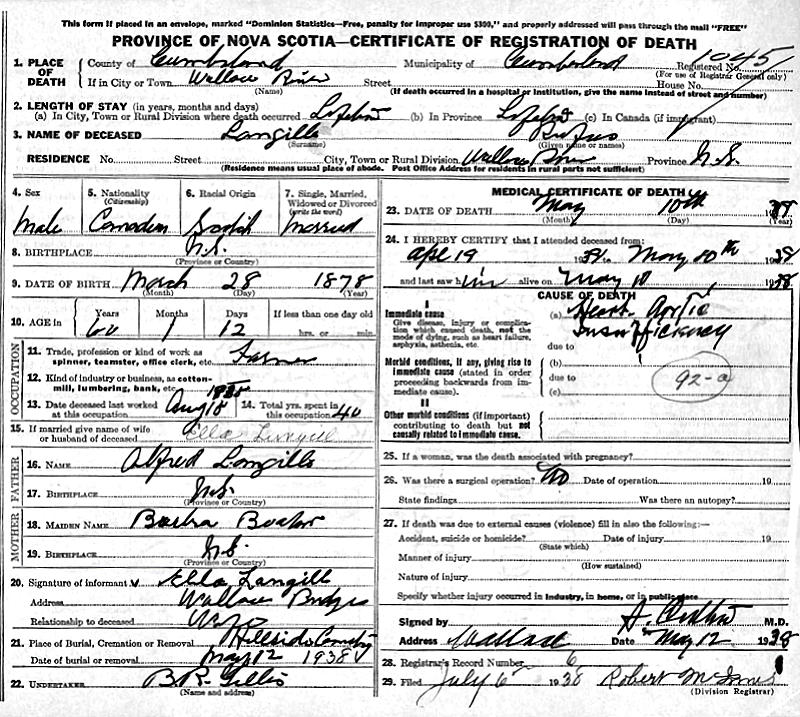 This form if placed in an envelope, marked "Dominion Statistics—Free, penalty for improper use $300," and properly addressed will pass through the mail "FREE"
PROVINCE OF NOVA SCOTIA—CERTIFICATE OF REGISTRATION OF DEATH
1. PLACE OF DEATH County of Cumberland Municipality of Cumberland Registered No. 1045
(For use of Registrar General only)
If in City or Town Wallace River Street House No.
(Name) (If death occurred in a hospital or institution, give the name instead of street and number)
2. LENGTH OF STAY (in years, months and days)
(a) In City, Town or Rural Division where death occurred Lifetime (b) In Province Lifetime (c) In Canada (if immigrant)
3. NAME OF DECEASED Langille Rufus
(Surname) (Given name or names)
RESIDENCE No. Street City, Town or Rural Division Wallace River Province N.S.
(Residence means usual place of abode. Post Office Address for residents in rural parts not sufficient)
4. Sex 5. Nationality 6. Racial Origin 7. Single, Married, Widowed or Divorced
(Citizenship) (write the word)
Male Canadian Scotish Married
8. BIRTHPLACE N.S.
(Province or Country)
9. DATE OF BIRTH March 28 1878
(Month) (Day) (Year)
10. AGE in Years Months Days If less than one day old
60 1 12 hrs. or min.
OCCUPATION
11. Trade, profession or kind of work as spinner, teamster, office clerk, etc. Farmer
12. Kind of industry or business, as cotton-mill, lumbering, bank, etc.
13. Date deceased last worked at this occupation Aug 18 14. Total yrs. spent in this occupation 40
15. If married give name of wife or husband of deceased Ella Langille
FATHER
16. NAME Alfred Langille
17. BIRTHPLACE N.S.
(Province or Country)
MOTHER
18. MAIDEN NAME
19. BIRTHPLACE N.S.
(Province or Country)
20. Signature of informant Ella Langille
Address Wallace Bridge
Relationship to deceased Wife
21. Place of Burial, Cremation or Removal Hillside Cemetery
Date of burial or removal May 12 1938
22. UNDERTAKER B.R. Gillis
(Name and address)
MEDICAL CERTIFICATE OF DEATH
23. DATE OF DEATH May 10th 1938
(Month) (Day) (Year)
24. I HEREBY CERTIFY that I attended deceased from:
Apl 19 1938 to May 10th 1938
and last saw him alive on May 10, 1938
CAUSE OF DEATH
I
Immediate cause
Give disease, injury or complication which caused death, not the mode of dying, such as heart failure, asphyxia, asthenia, etc.
(a) Heart. Aortic
Insufficiency
due to
Morbid conditions, if any, giving rise to immediate cause (stated in order proceeding backwards from immediate cause).
(b)
due to 92-a
(c)
II
Other morbid conditions (if important) contributing to death but not causally related to immediate cause.
25. If a woman, was the death associated with pregnancy?
26. Was there a surgical operation? No Date of operation 19
State findings Was there an autopsy?
27. If death was due to external causes (violence) fill in also the following:—
Accident, suicide or homicide? Date of injury 19
(State which)
Manner of injury
(How sustained)
Nature of injury
Specify whether injury occurred in industry, in home, or in public place
Signed by M.D.
Address Wallace Date May 12 1938
28. Registrar's Record Number 6
29. Filed July 6 1938 Robert
(Division Registrar)